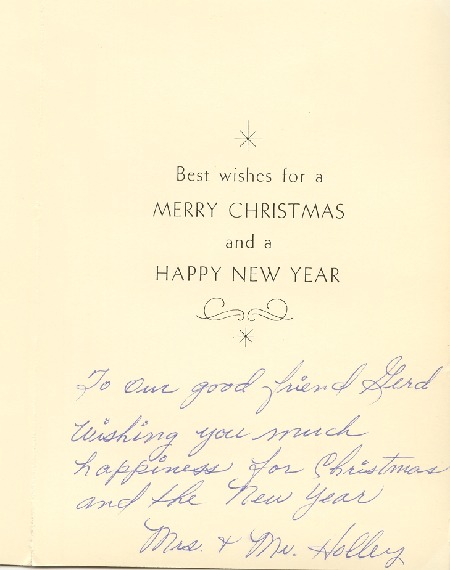 Best wishes for a
MERRY CHRISTMAS
and a
HAPPY NEW YEAR
To our good friend Gerd
Wishing you much
happiness for Christmas
and the New Year
Mrs. + Mr. Holley